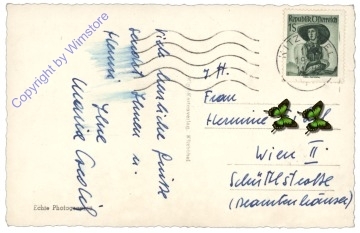 Copyright by Wimstore
Republik Österreich
1S
Viele herzliche Grüße
sendet Ihnen u.
Ihre
Echte Photographie
Frau
Hermine
Wien II
Schüttelstraße
(Beamtenhäuser)